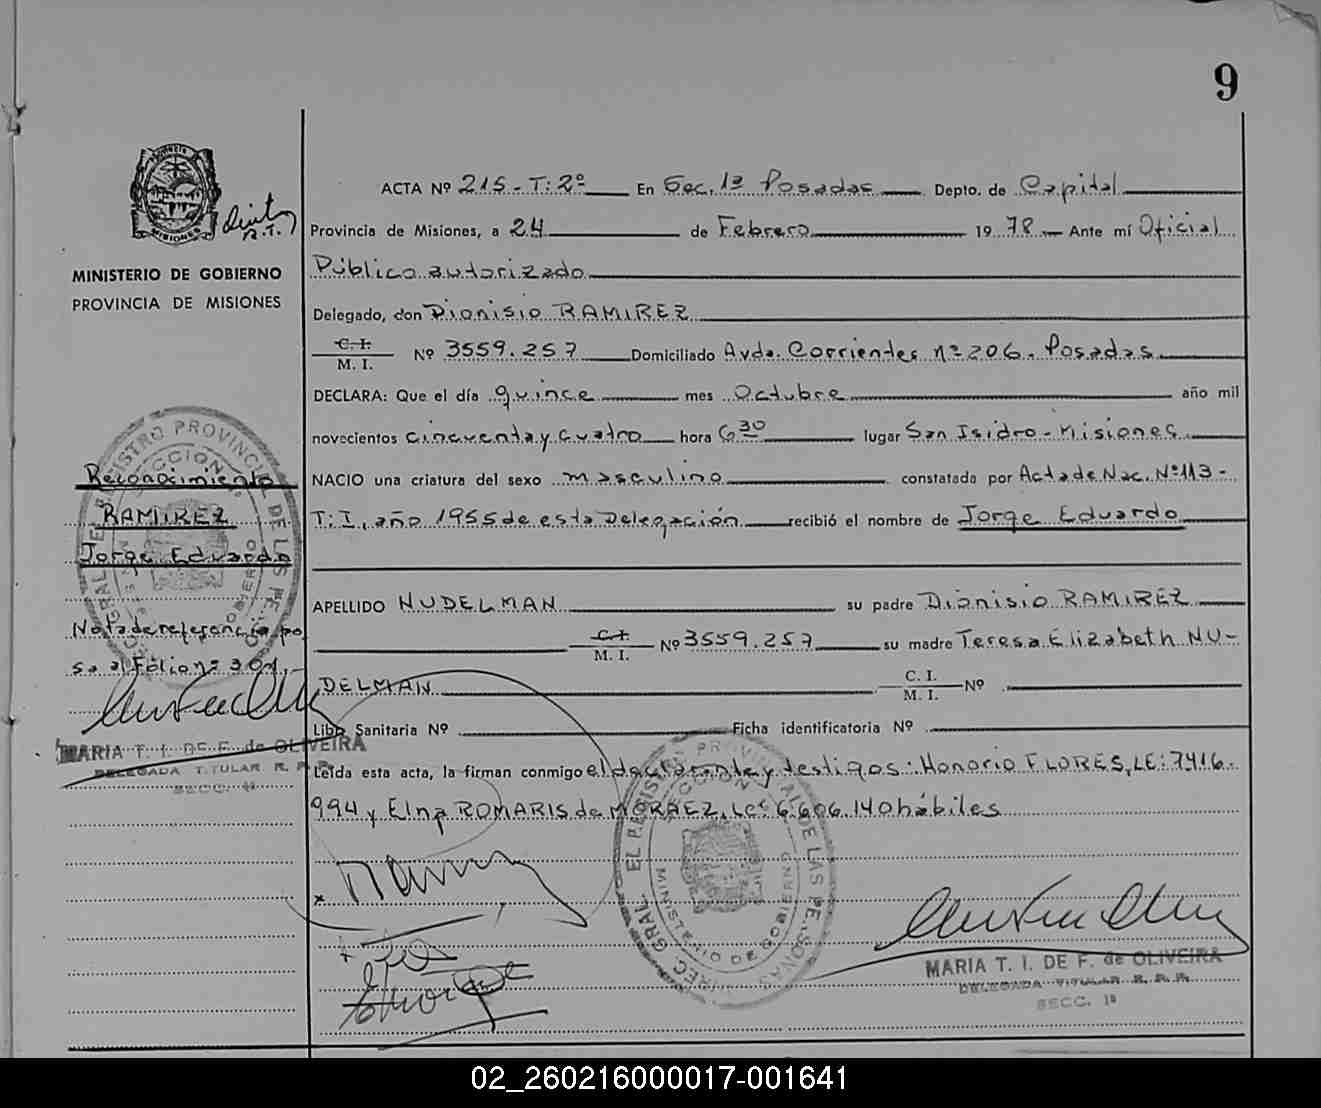 9
PROVINCIA
MISIONES
MINISTERIO DE GOBIERNO
PROVINCIA DE MISIONES
ACTA Nº 215 - T: 2º En Sec. 1ª Posadas Depto. de Capital
Provincia de Misiones, a 24 de Febrero 19 78 Ante mí Oficial
Público autorizado
Delegado, don Dionisio RAMIREZ
C. I.
M. I. Nº 3559.257 Domiciliado Avda. Corrientes nº 206. Posadas
DECLARA: Que el día quince mes Octubre año mil
novecientos cincuenta y cuatro hora 6 30 lugar San Isidro - Misiones
NACIO una criatura del sexo masculino constatada por Acta de Nac. Nº 113 -
T: I, año 1955 de esta Delegación recibió el nombre de Jorge Eduardo
APELLIDO NUDELMAN su padre Dionisio RAMIREZ
C. I.
M. I. Nº 3559.257 su madre Teresa Elizabeth NU-
DELMAN C. I.
M. I. Nº
Libr. Sanitaria Nº Ficha identificatoria Nº
Leída esta acta, la firman conmigo el declarante y testigos: Honorio FLORES, LE: 7416.
994 y Elna ROMARIS de MORAEZ, Lc: 6.606.140 hábiles
MARIA T. I. DE F. de OLIVEIRA
DELEGADA TITULAR R. P. P.
SECC. 1ª
Reconocimiento
RAMIREZ
Jorge Eduardo
Nota de referencia po
sa al Folio nº 301.-
MARIA T. I. DE F. de OLIVEIRA
DELEGADA TITULAR R. P. P.
SECC. 1ª
02_260216000017-001641